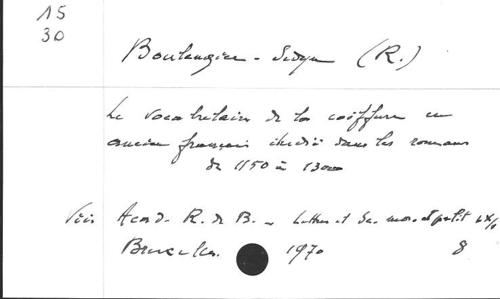 15
30
Boulangier - Sedyn (R.)
Le vocabulaire de la coiffure en
ancien français étudié dans les romans
de 1150 à 1300
Acad. R. de B. - Lettres et
Bruxelles. 1970 8